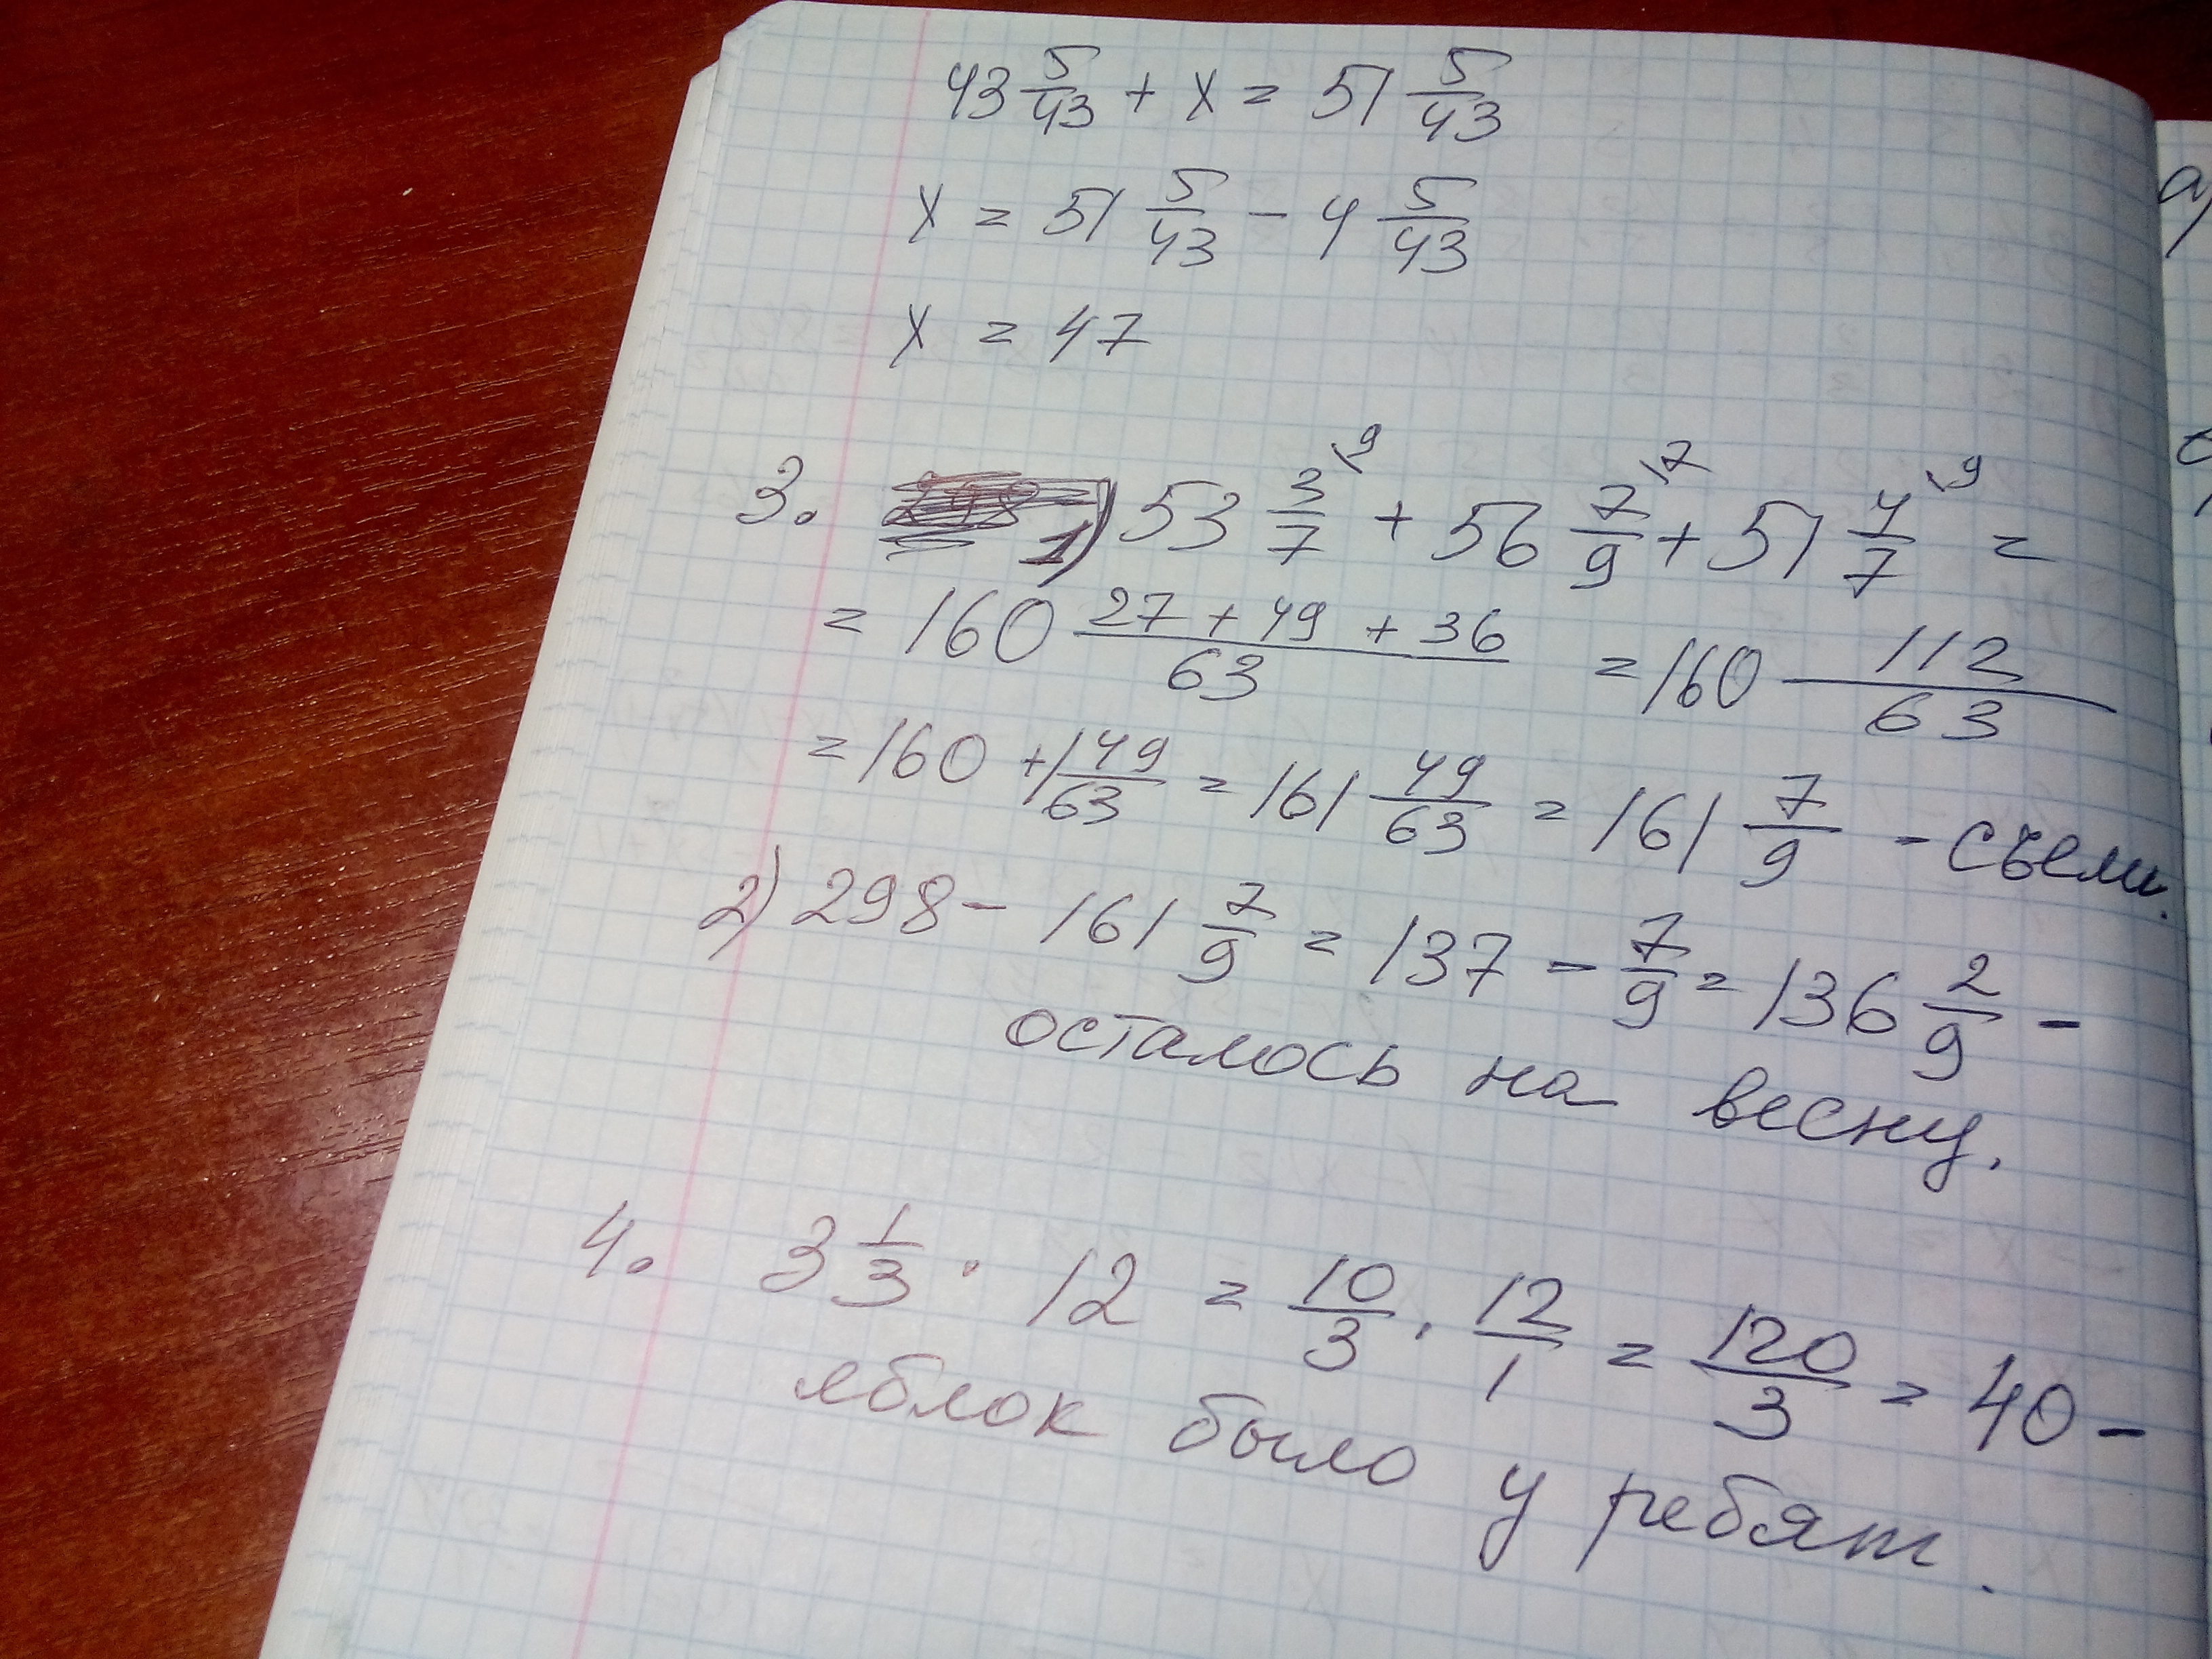 43 5/43 + x = 51 5/43
x = 51 5/43 - 4 5/43
x = 47
3. 1) 53 3/7 \9 + 56 7/9 \7 + 51 4/7 \9 =
= 160 27 + 49 + 36/63 = 160 112/63
= 160 + 1 49/63 = 161 49/63 = 161 7/9 - съели.
2) 298 - 161 7/9 = 137 - 7/9 = 136 2/9 -
осталось на весну.
4. 3 1/3 · 12 = 10/3 · 12/1 = 120/3 = 40 -
яблок было у ребят.
а)